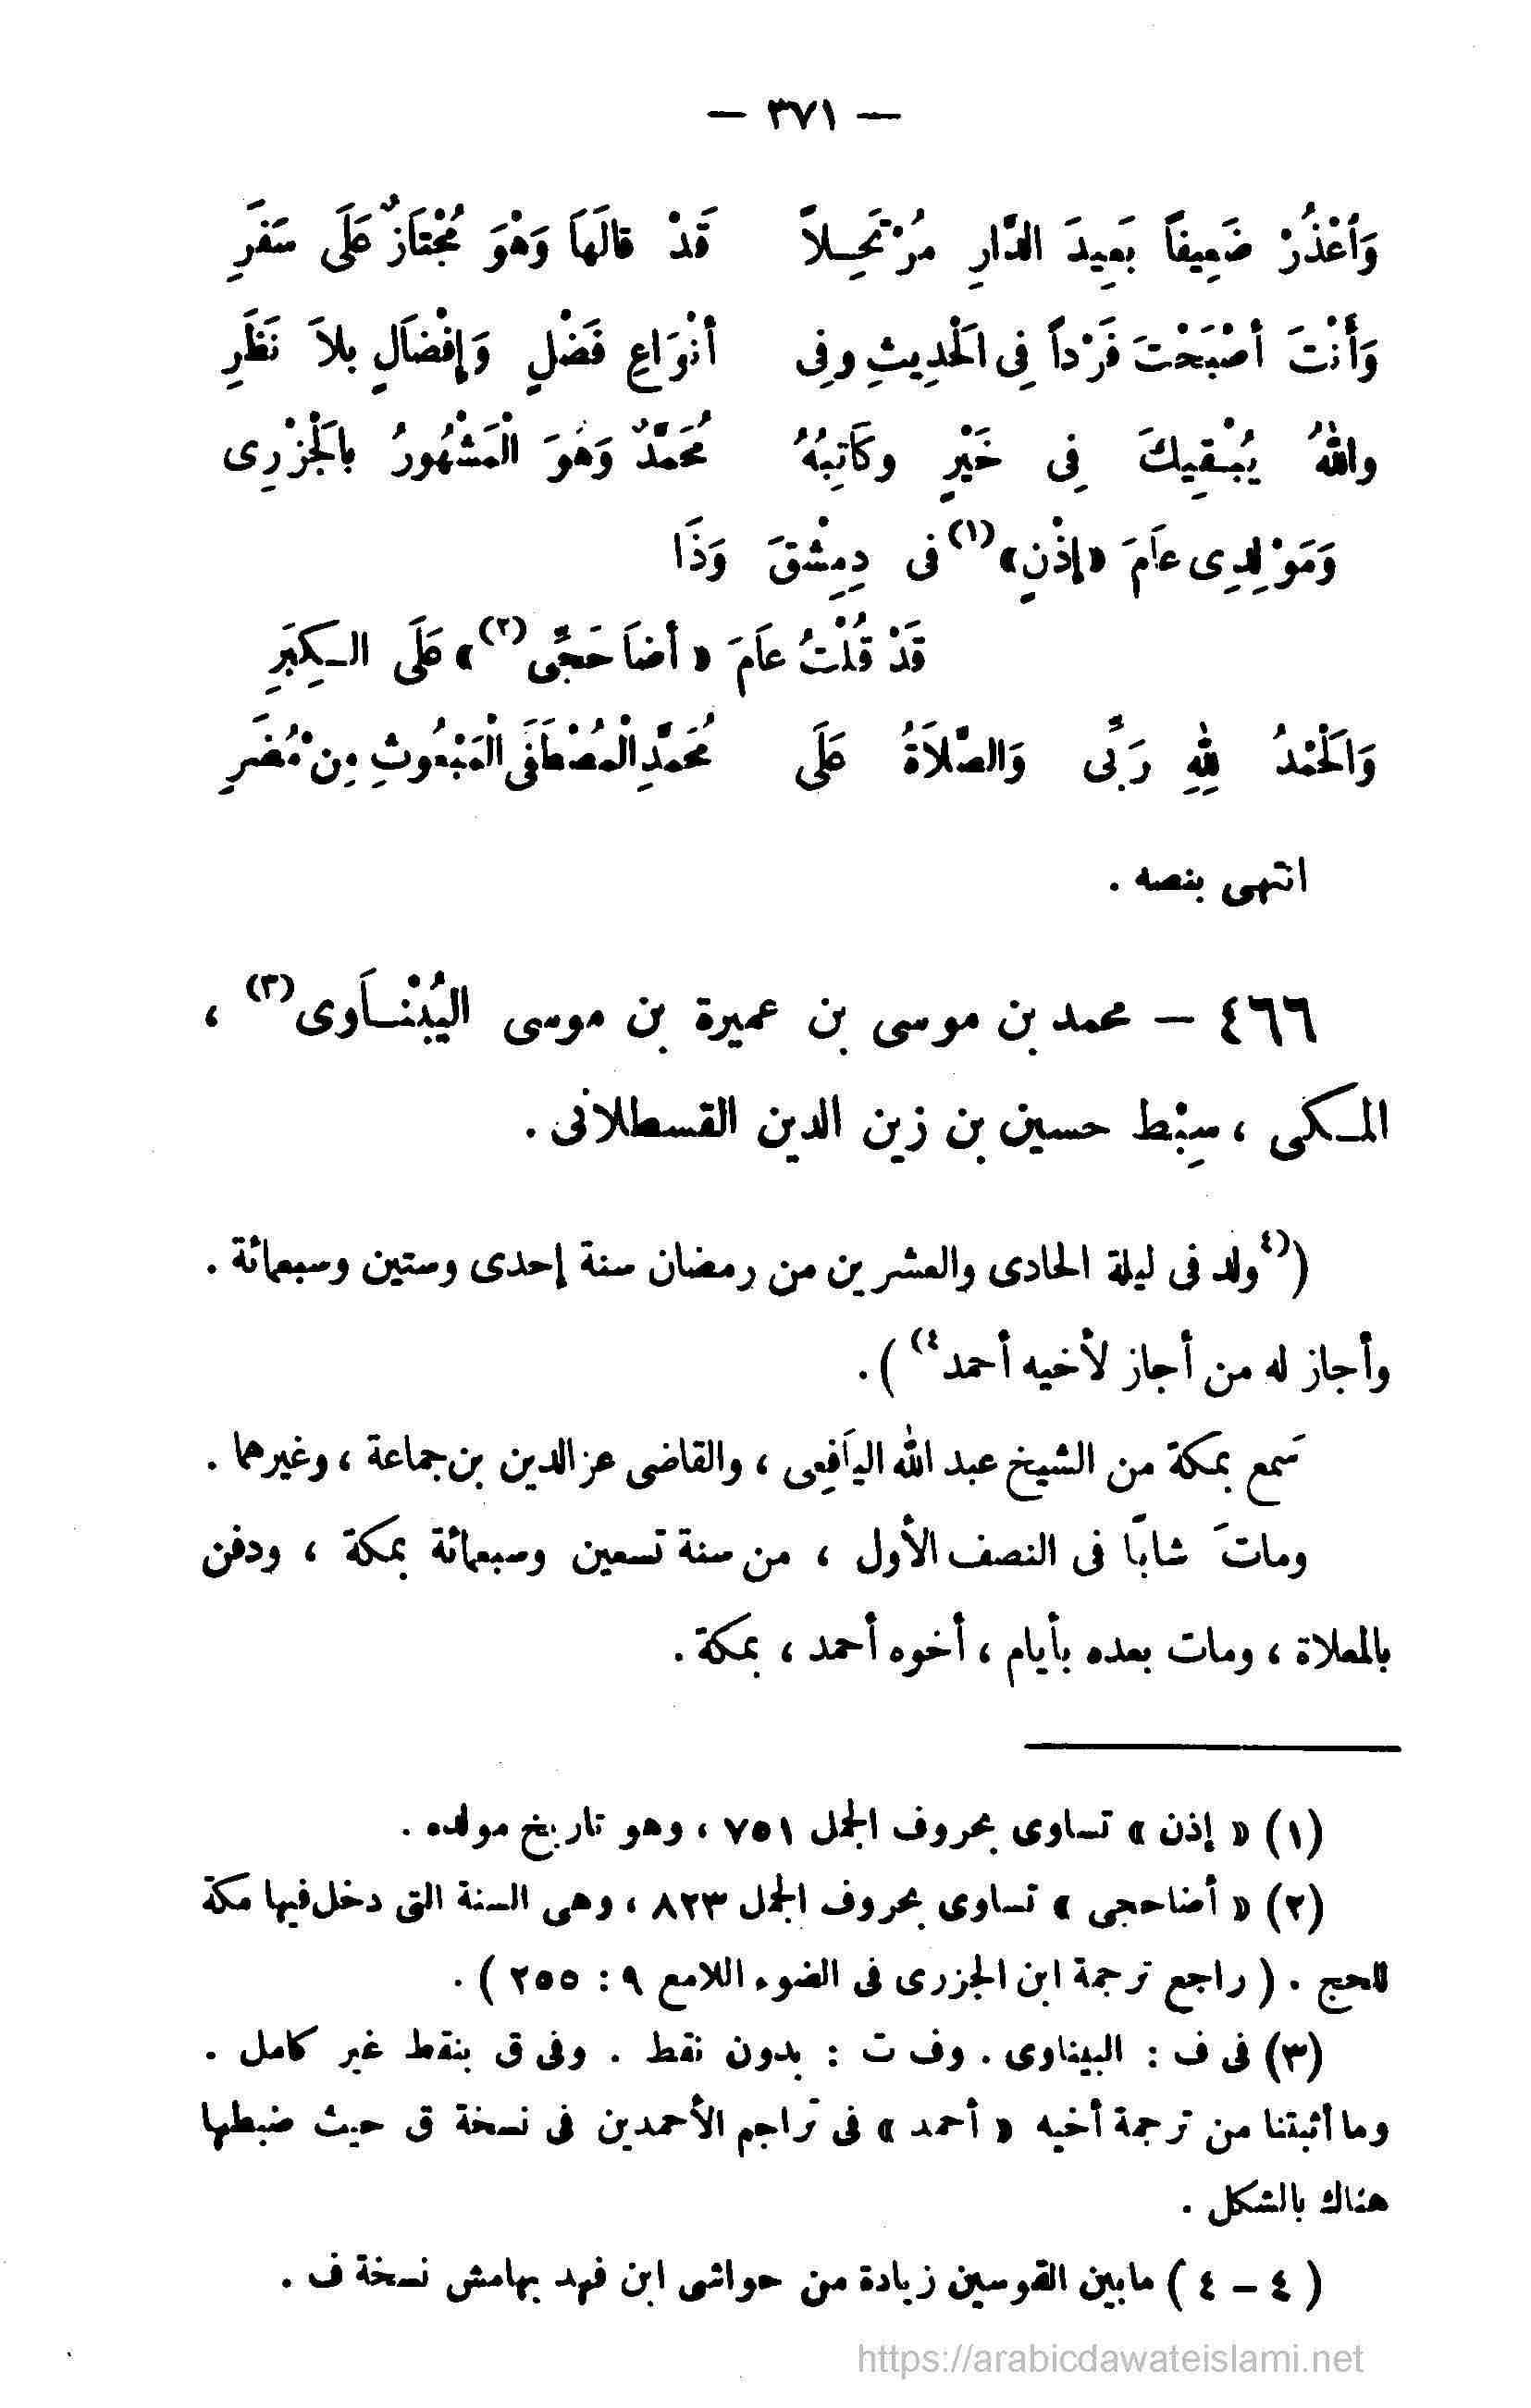 — ٣٧١ —
وَاعْذُرْ ضَعِيفاً بَعِيدَ الدَّارِ مُرْتَحِلاً قَدْ قالَهاَ وَهْوَ مُجْتاَزٌ عَلَى سَفَرِ
وَأَنْتَ أصْبَحْتَ فَرْداً فِى الَحْدِيثِ وفِى أنْوَاعِ فَضْلٍ وَإفْضاَلٍ بلاَ نَظَرِ
واللهُ يُبْقِيكَ فِى خَيْرٍ وكَاتِبُهُ مُحَمَّدٌ وَهْوَ الْمَشْهُورُ بالَجْزْرِى
وَمَوْلِدِى عاَمَ «إذْنٍ»(١) فى دِمِشْقَ وَذَا
قَدْ قُلْتُ عاَمَ « أضاَحَجِّى(٢)» عَلَى الكِبَرِ
وَالَحْمْدُ لِلهِ رَبِّى وَالصَّلاَةُ عَلَى مُحَمَّدِ الْمُصْطَفَى الْمَبْعُوثِ مِنْ مُضَرِ
انتهى بنصه .
٤٦٦ — محمد بن موسى بن عميرة بن موسى اليُبْنَاوى(٣) ،
المكى ، سِبْط حسين بن زين الدين القسطلانى .
(٤)ولد فى ليلة الحادى والعشرين من رمضان سنة إحدى وستين وسبعمائة .
وأجاز له من أجاز لأخيه أحمد(٤) ) .
سَمع بمكة من الشيخ عبد الله الياَفِعى ، والقاضى عز الدين بن جماعة ، وغيرهما .
وماتَ شابًا فى النصف الأول ، من سنة تسعين وسبعمائة بمكة ، ودفن
بالمعلاة ، ومات بعده بأيام ، أخوه أحمد ، بمكة .
(١) « إذن » تساوى بحروف الجمل ٧٥١ ، وهو تاريخ مولده .
(٢) « أضاحجى » تساوى بحروف الجمل ٨٢٣ ، وهى السنة التى دخل فيها مكة
للحج . ( راجع ترجمة ابن الجزرى فى الضوء اللامع ٩ : ٢٥٥ ) .
(٣) فى ف : البيناوى . وف ت : بدون نقط . وفى ق بنقط غير كامل .
وما أثبتنا من ترجمة أخيه « أحمد » فى تراجم الأحمدين فى نسخة ق حيث ضبطها
هناك بالشكل .
( ٤ – ٤ ) مابين القوسين زيادة من حواشى ابن فهد بهامش نسخة ف .
https://arabicdawateislami.net